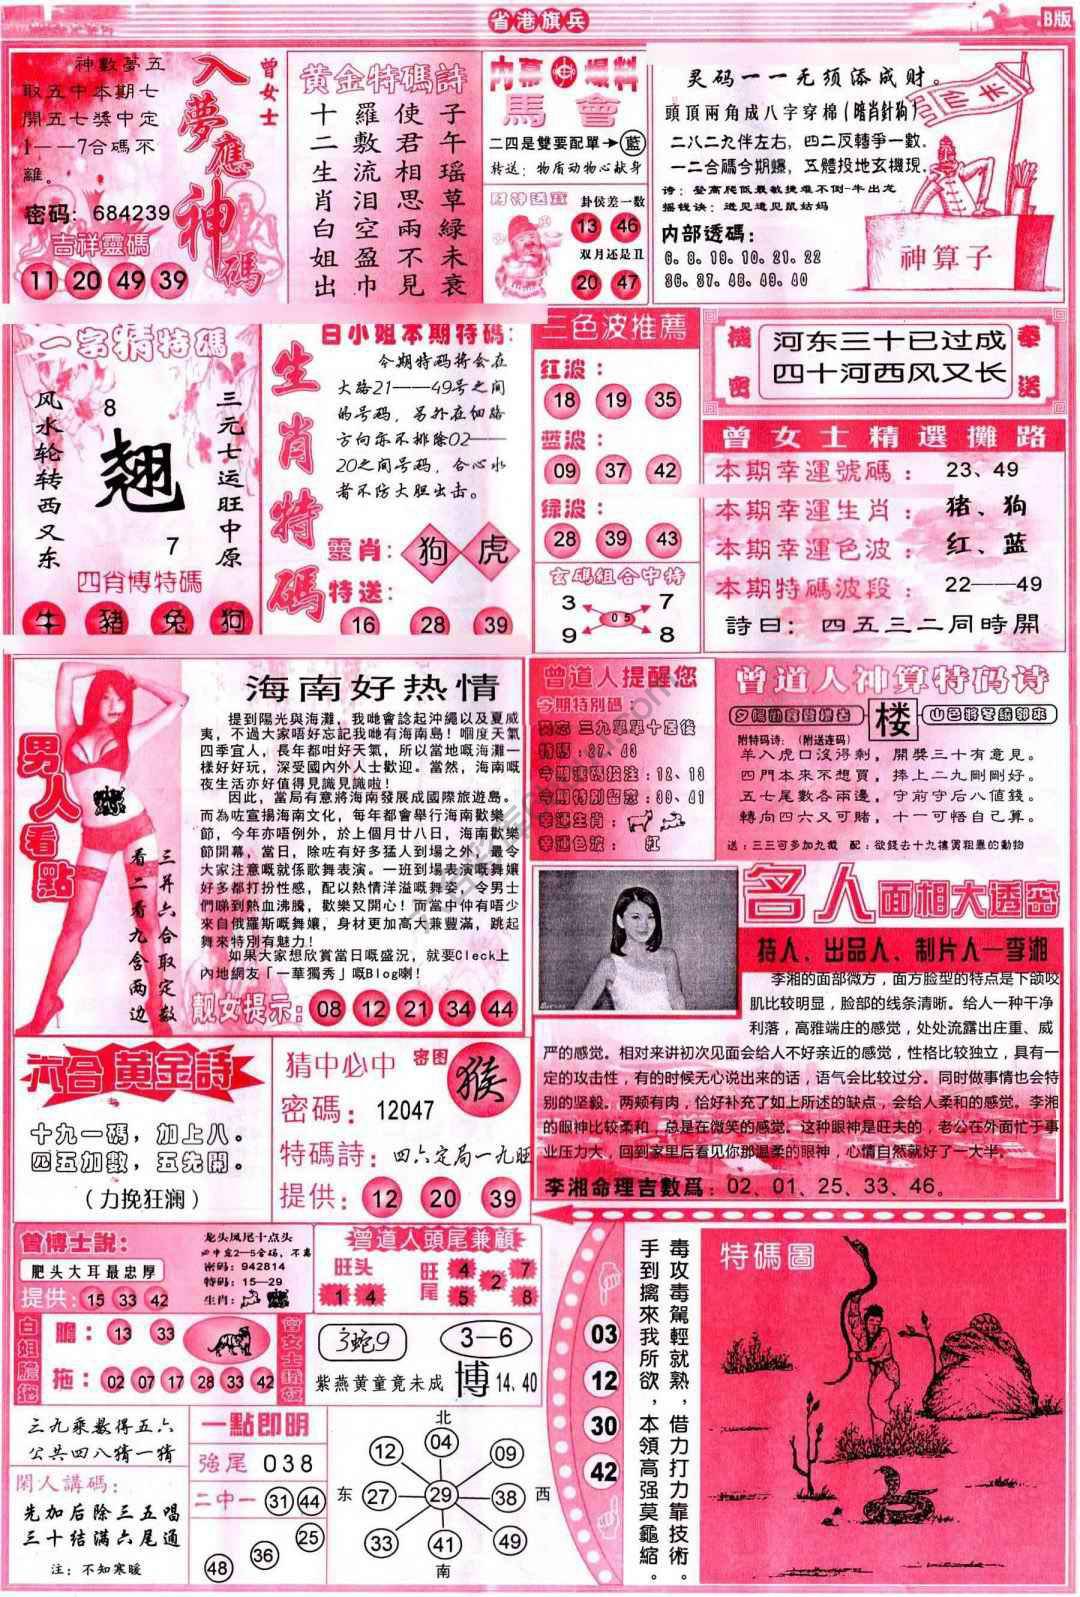 省港旗兵
B版
曾女士
入夢應神碼
神數夢五
取五中本期七
開五七獎中定
1——7合碼不
離。
密码：684239
吉祥靈碼
11 20 49 39
黄金特碼詩
子午瑶草綠未衰
使君相思兩不見
羅敷流泪空盈巾
十二生肖白姐出
内幕 爆料
馬會
二四是雙要配單→藍
转送：物质动物心献身
財神送寶
卦侯差一数
13 46
双月还是丑
20 47
灵码一一无须添成财。
頭頂兩角成八字穿棉(瞎肖針狗)
二八二九伴左右，四二反轉爭一數.
一二合碼今期爆，五體投地玄機現.
诗：登高爬低最敏捷难不倒-牛出龙
摇钱诀：进见遗见鼠姑妈
内部透碼：
36.37.48.49.40
半仙
神算子
一字猜特碼
三元七运旺中原
8
翘
7
风水轮转西又东
四肖博特碼
牛 豬 兔 狗
生肖特碼
白小姐本期特碼：
今期特码将会在
大路21——49号之间
的号码，另外在细路
方向亦不排除02——
20之间号码，合心水
者不防大胆出击。
靈肖：狗 虎
特送：
16 28 39
三色波推薦
红波：
18 19 35
蓝波：
09 37 42
绿波：
28 39 43
玄碼組合中特
3 7
05
9 8
機密
河东三十已过成
四十河西风又长
奉送
曾女士精選攤路
本期幸運號碼：23、49
本期幸運生肖：猪、狗
本期幸運色波：红、蓝
本期特碼波段：22——49
詩曰：四五三二同時開
男人看點
三并六合取定数
看二看九含两边
海南好热情
提到陽光與海灘，我哋會諗起沖繩以及夏威
夷，不過大家唔好忘記我哋有海南島！嗰度天氣
四季宜人，長年都咁好天氣，所以當地嘅海灘一
樣好好玩，深受國內外人士歡迎。當然，海南嘅
夜生活亦好值得見識見識啦！
因此，當局有意將海南發展成國際旅遊島，
而為咗宣揚海南文化，每年都會舉行海南歡樂
節，今年亦唔例外，於上個月廿八日，海南歡樂
節開幕，當日，除咗有好多猛人到場之外，最令
大家注意嘅就係歌舞表演。一班到場表演嘅舞孃
好多都打扮性感，配以熱情洋溢嘅舞姿，令男士
們睇到熱血沸騰，歡樂又開心！而當中仲有唔少
來自俄羅斯嘅舞孃，身材更加高大兼豐滿，跳起
舞來特別有魅力！
如果大家想欣賞當日嘅盛況，就要Cleck上
內地網友「一華獨秀」嘅Blog喇！
靓女提示：08 12 21 34 44
曾道人提醒您
今期特别碼：
三九單單十足後
特碼：37、43
今期運碼投注：12、18
今期特别留意：30、41
幸運生肖：
幸運色波：红
曾道人神算特码诗
楼
山色將冬鏡鄰來
附特码诗：(附送连码)
羊入虎口沒得剩，開獎三十有意見。
四門本來不想買，捧上二九剛剛好。
五七尾數各兩邊，守前守后八值錢。
轉向四六又可賭，十一可悟自己算。
送：三三可多加九截 配：欲錢去十九樓買粗壹的動物
名人面相大透密
持人、出品人、制片人—李湘
李湘的面部微方，面方脸型的特点是下颌咬
肌比较明显，脸部的线条清晰。给人一种干净
利落，高雅端庄的感觉，处处流露出庄重、威
严的感觉。相对来讲初次见面会给人不好亲近的感觉，性格比较独立，具有一
定的攻击性，有的时候无心说出来的话，语气会比较过分。同时做事情也会特
别的坚毅。两颊有肉，恰好补充了如上所述的缺点，会给人柔和的感觉。李湘
的眼神比较柔和，总是在微笑的感觉。这种眼神是旺夫的，老公在外面忙于事
业压力大，回到家里后看见你那温柔的眼神，心情自然就好了一大半。
李湘命理吉數爲：02、01、25、33、46。
六合黄金詩
十九一碼，加上八。
四五加數，五先開。
(力挽狂澜)
猜中必中 密图 猴
密碼：12047
特碼詩：四六定局一九旺
提供：12 20 39
曾博士說：
肥头大耳最忠厚
提供：15 33 42
龙头凤尾十点头
四中定2—5合码，不离
密码：942814
特码：15—29
生肖：
曾道人頭尾兼顧
旺头
1 4
旺尾
4 7
2
5 8
白姐膽拖
膽：13 33
拖：02 07 17 28 33 42
蛇9
3—6
紫燕黄童竟未成 博 14、40
三九乘數得五六
公共四八猜一猜
閑人講碼：
先加后除三五唱
三十结滿六尾通
注：不知寒暖
一點即明
強尾 038
二中一 31 44
25
36
48
北
12 04 09
东 27 29 38 西
33 41 49
南
03
12
30
42
毒攻毒駕輕就熟，借力打力靠技術。
手到擒來我所欲，本領高强莫龜縮。
特碼圖